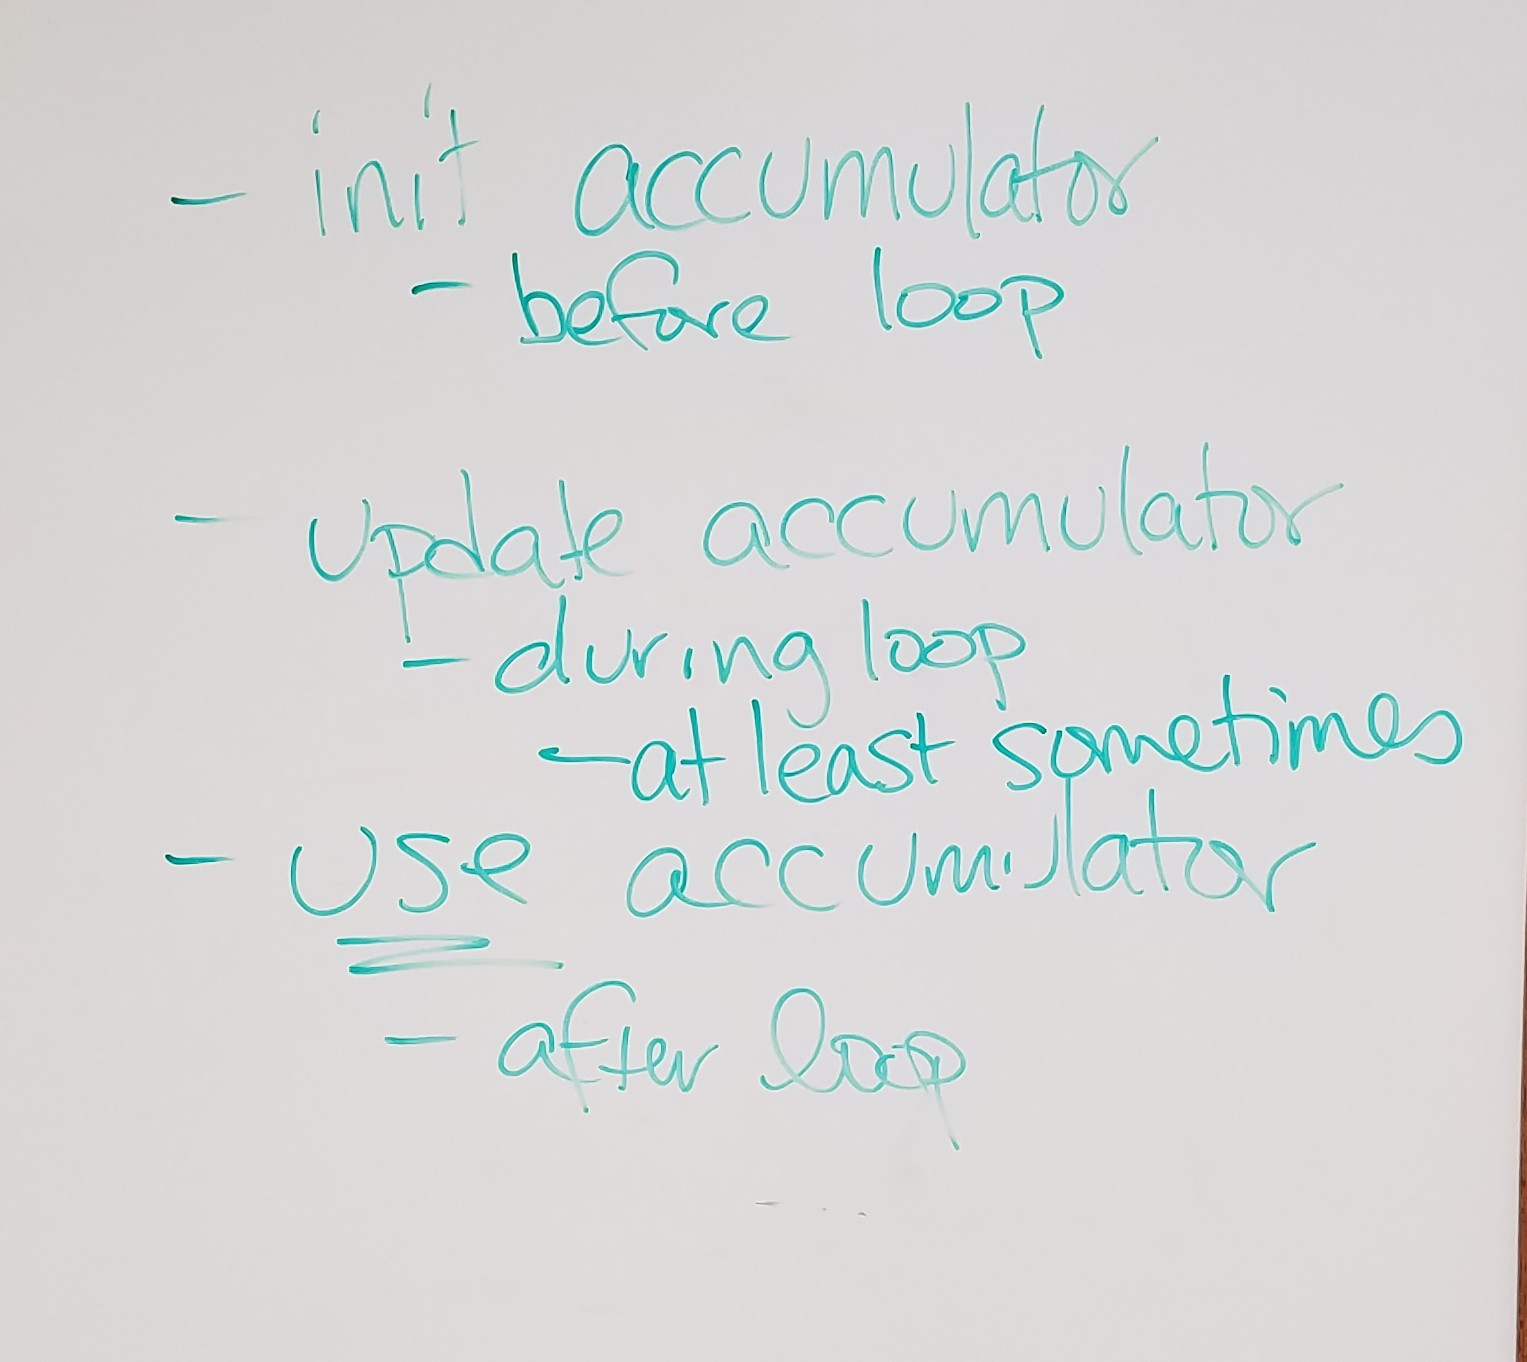 - init accumulator
- before loop
- update accumulator
- during loop
- at least sometimes
- use accumulator
- after loop